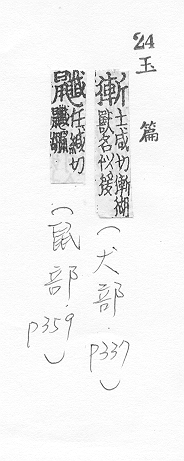 24 玉 篇
獑 士咸切獑猢
獸名似猨
(犬部. p337)
任緘切
(鼠部. p359)